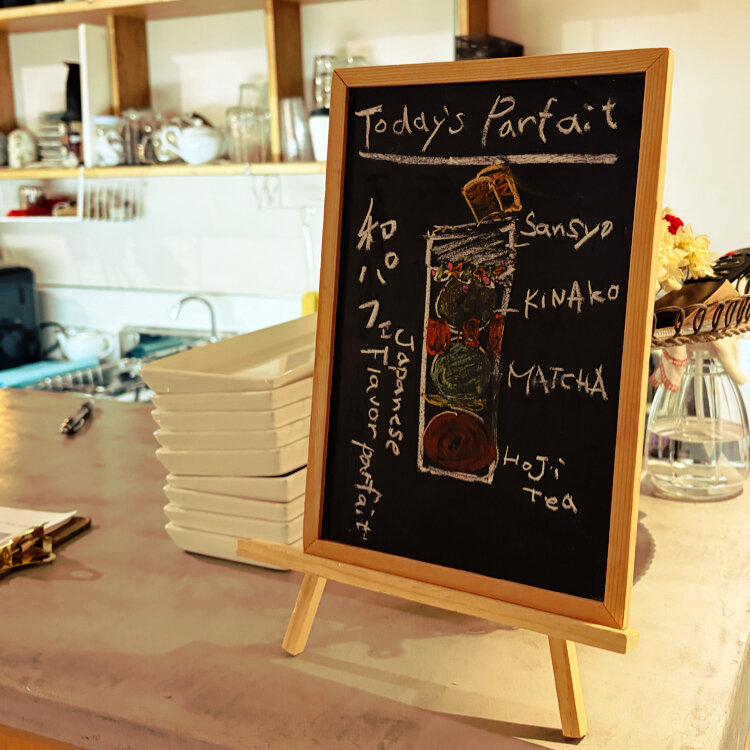 Today's Parfait
Sansyo
KINAKO
MATCHA
Hoji
tea
和パフェ
Japanese
Flavor parfait